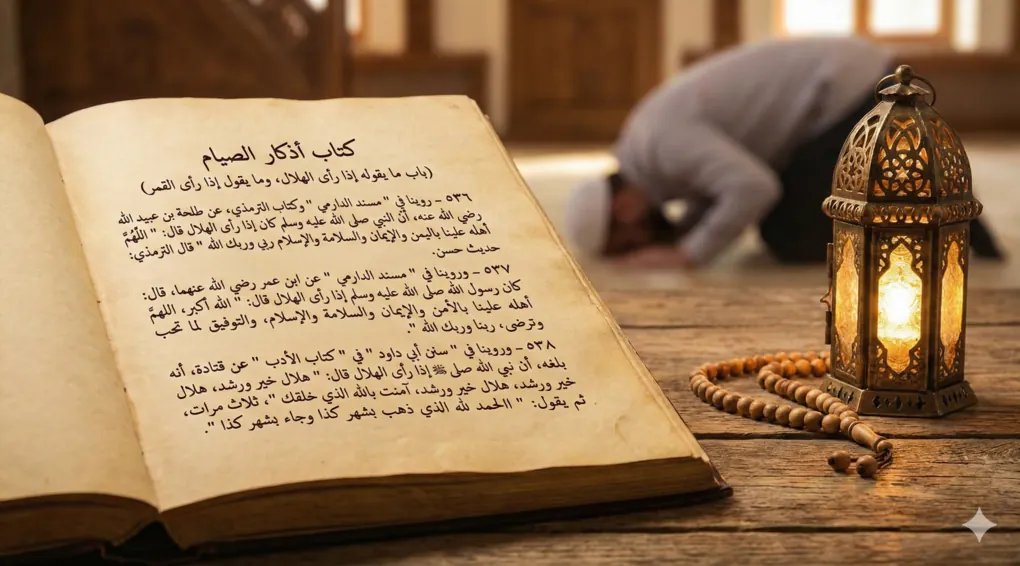 كتاب أذكار الصيام
(باب ما يقوله إذا رأى الهلال، وما يقول إذا رأى القمر)
٥٣٦ - روينا في " مسند الدارمي " وكتاب الترمذي، عن طلحة بن عبيد الله
رضي الله عنه، أن النبي صلى الله عليه وسلم كان إذا رأى الهلال قال: " اللَّهُمَّ
أهله علينا باليمن والإيمان والسلامة والإسلام ربي وربك الله " قال الترمذي:
حديث حسن.
٥٣٧ - وروينا في " مسند الدارمي " عن ابن عمر رضي الله عنهما، قال:
كان رسول الله صلى الله عليه وسلم إذا رأى الهلال قال: " الله أكبر، اللهمَّ
أهله علينا بالأمن والإيمان والسلامة والإسلام، والتوفيق لما تحب
وترضى، ربنا وربك الله ".
٥٣٨ - وروينا في " سنن أبي داود " في " كتاب الأدب " عن قتادة، أنه
بلغه، أن نبي الله صلى ﷺ إذا رأى الهلال قال: " هلال خير ورشد، هلال
خير ورشد، هلال خير ورشد، آمنت بالله الذي خلقك "، ثلاث مرات،
ثم يقول: " االحمد لله الذي ذهب بشهر كذا وجاء بشهر كذا ".